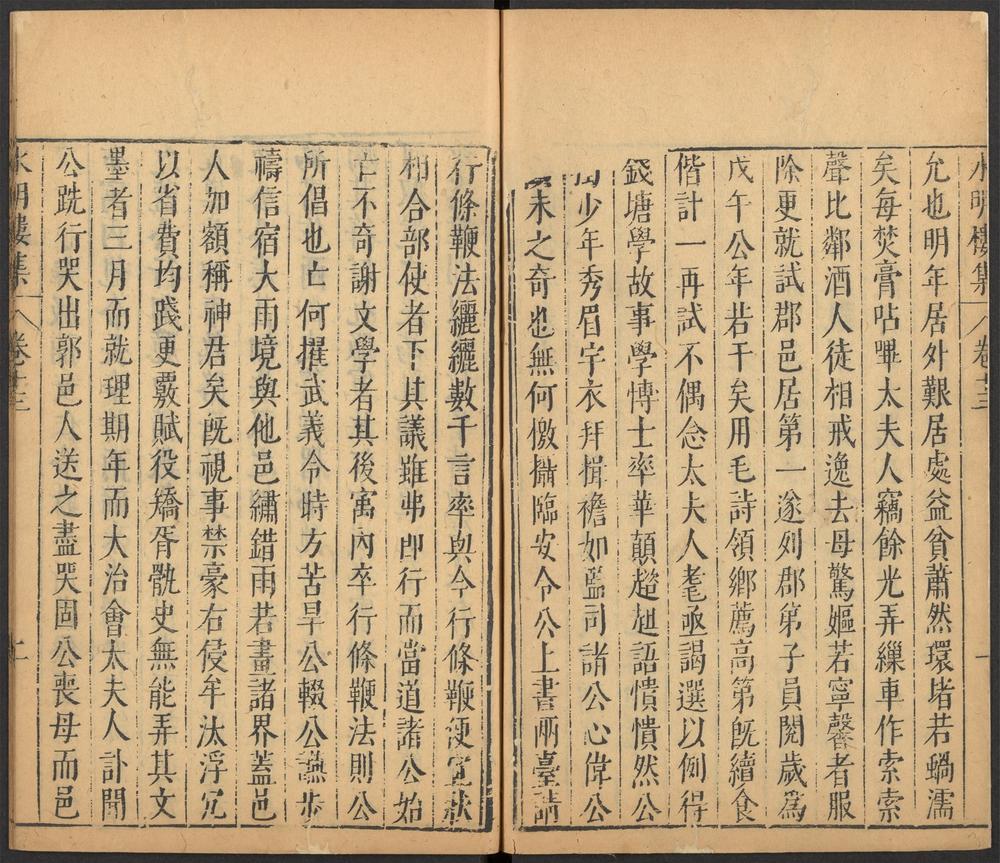 水明樓集 八卷十三
允也明年居外艱居處益貧蕭然環堵若蝸濡
矣每焚膏呫嗶太夫人竊餘光弄繅車作索索
聲比鄰酒人徒相戒逸去母驚嫗若寧馨者服
除更就試郡邑居第一遂列郡弟子員閱歲爲
戊午公年若干矣用毛詩領鄉薦高第旣續食
偕計一再試不偶念太夫人耄亟謁選以例得
錢塘學故事學博士率華顛趑趄語憒憒然公
少年秀眉宇衣拜揖襜如監司諸公心偉公
未之奇也無何檄攝臨安令公上書兩臺請
行條鞭法纚纚數千言率與今行條鞭便宜狀
相合部使者下其議雖弗卽行而當道諸公始
亡不奇謝文學者其後寓內卒行條鞭法則公
所倡也亡何擢武義令時方苦旱公輟公燕步
禱信宿大雨境與他邑繡錯雨若畫諸界蓋邑
人加額稱神君矣旣視事禁豪右侵牟汰浮冗
以省費均踐更覈賦役矯胥骩史無能弄其文
墨者三月而就理期年而大治會太夫人訃聞
公跣行哭出郭邑人送之盡哭固公喪母而邑
水明樓集 八卷十三